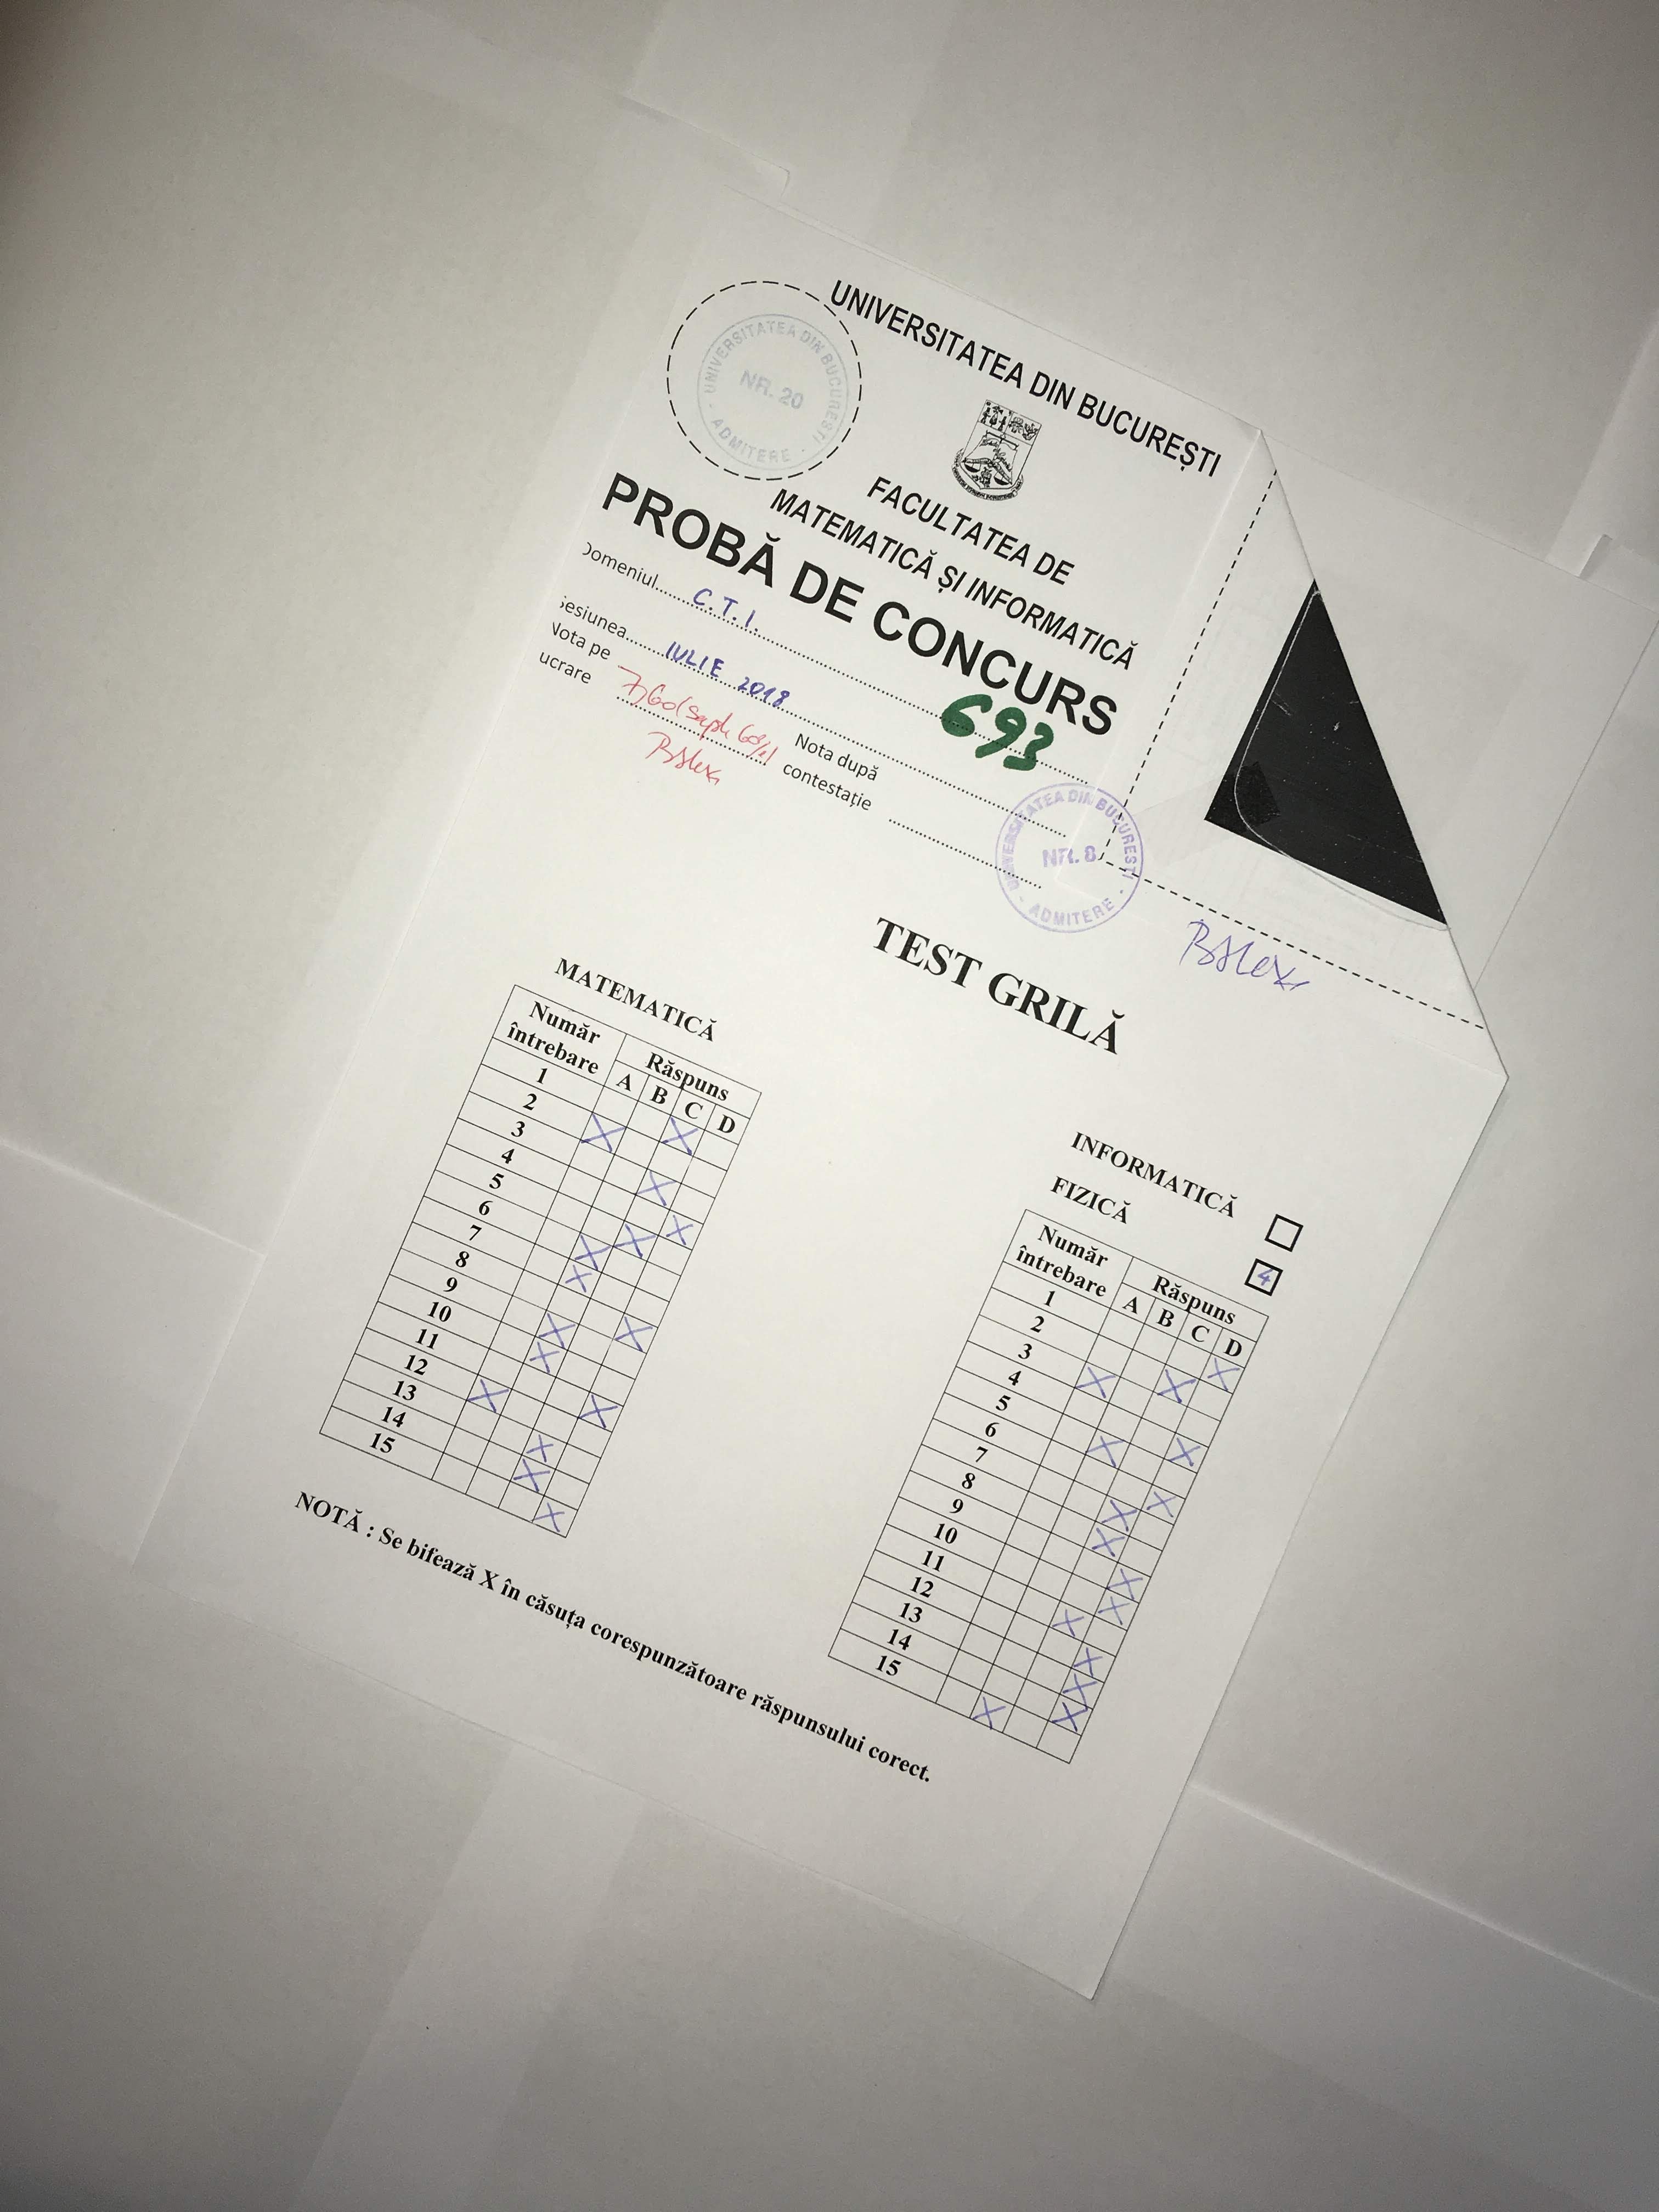 UNIVERSITATEA DIN BUCUREȘTI
UNIVERSITATEA DIN BUCUREȘTI
NR. 20
ADMITERE
FACULTATEA DE
MATEMATICĂ ȘI INFORMATICĂ
PROBĂ DE CONCURS
Domeniul C.T.I.
693
Sesiunea IULIE 2018
Nota pe
ucrare 7,60
Nota după
contestație
UNIVERSITATEA DIN BUCUREȘTI
NR. 8
ADMITERE
TEST GRILĂ
MATEMATICĂ
Număr
întrebare
Răspuns
A B C D
1
2 X X
3
4 X
5 X
6 X X
7 X
8
9 X X
10 X
11 X
12 X
13 X
14 X
15 X
INFORMATICĂ
FIZICĂ
Număr
întrebare
Răspuns
A B C D
1 X
2 X
3 X
4 X
5 X
6 X
7 X
8 X
9 X
10 X
11 X
12 X
13 X
14 X
15 X
NOTĂ : Se bifează X în căsuța corespunzătoare răspunsului corect.